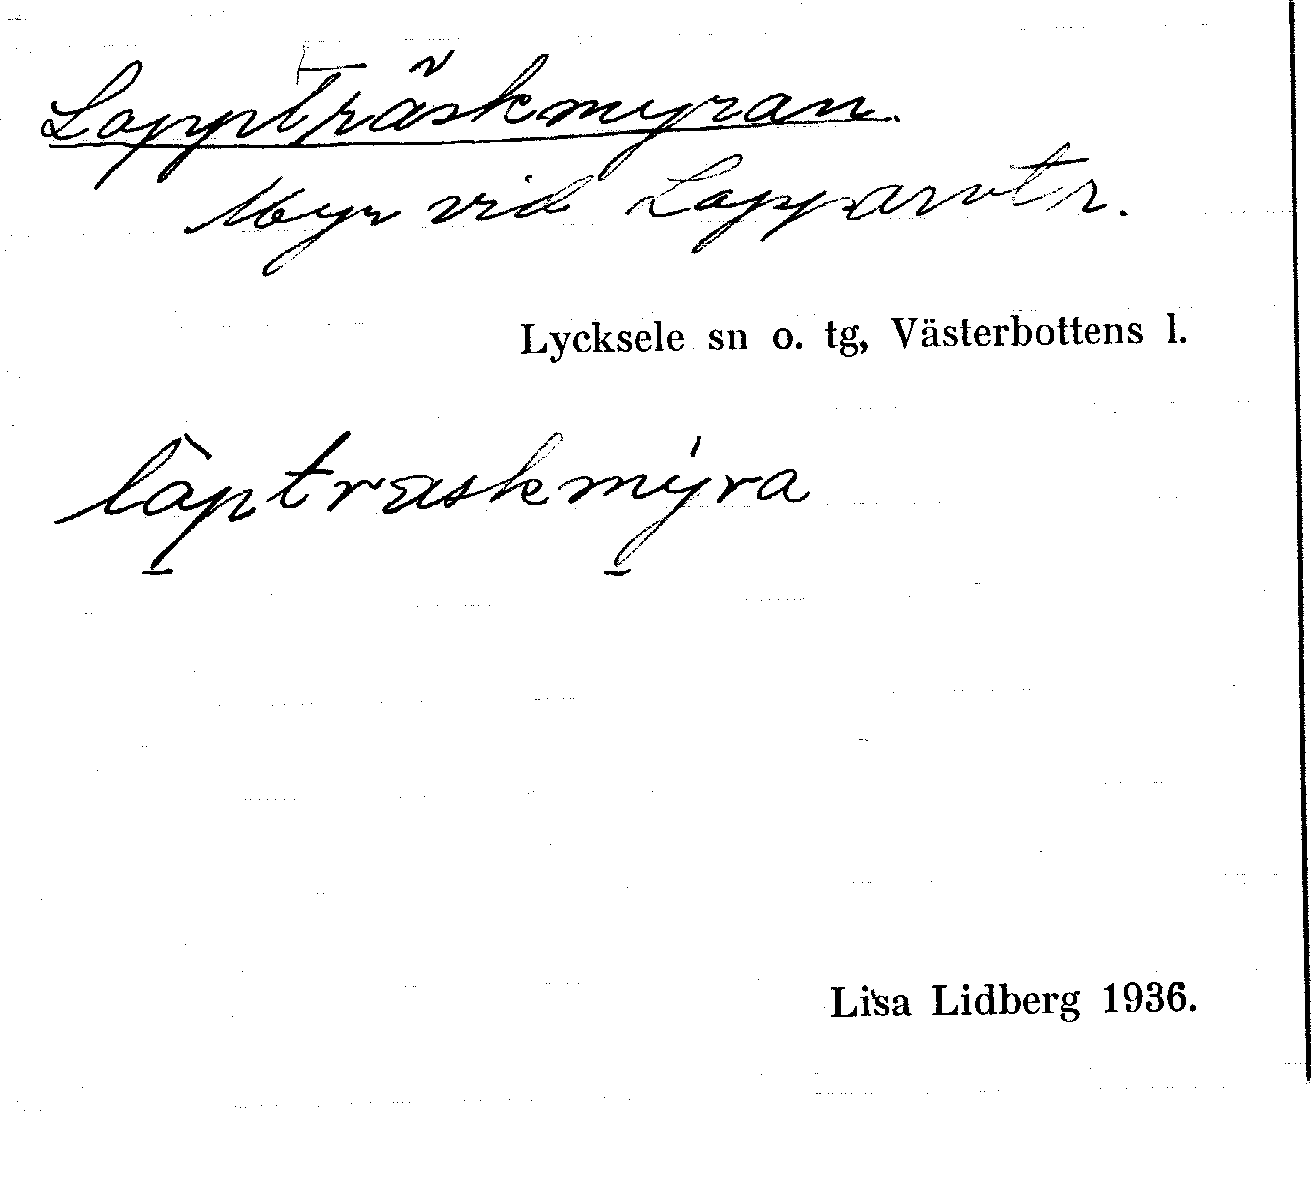 Lappträskmyran.
Myr vid Lapparvtr.
Lycksele sn o. tg, Västerbottens l.
lâptraskmýra
Lisa Lidberg 1936.